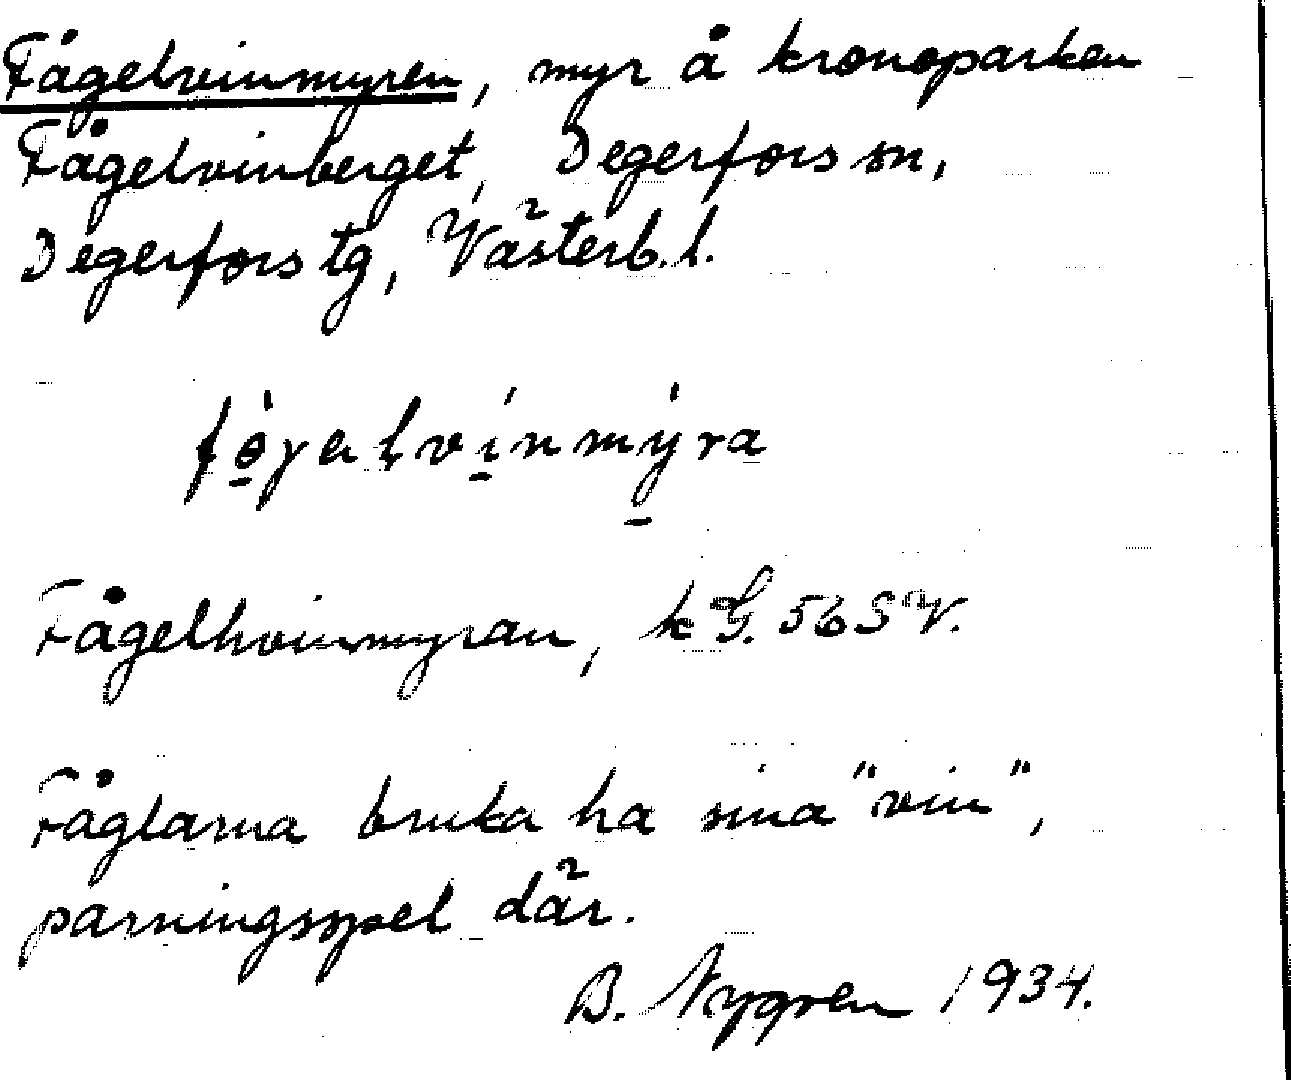 Fågelvinmyren, myr å kronoparken
Fågelvinberget, Degerfors sn,
Degerfors tg, Västerb. l.
fǫ̀γalvínmýra
Fågelhvinmyran, kG. 56 SV.
Fåglarna bruka ha sina "vin",
parningsspel där.
B. Nygren 1934.